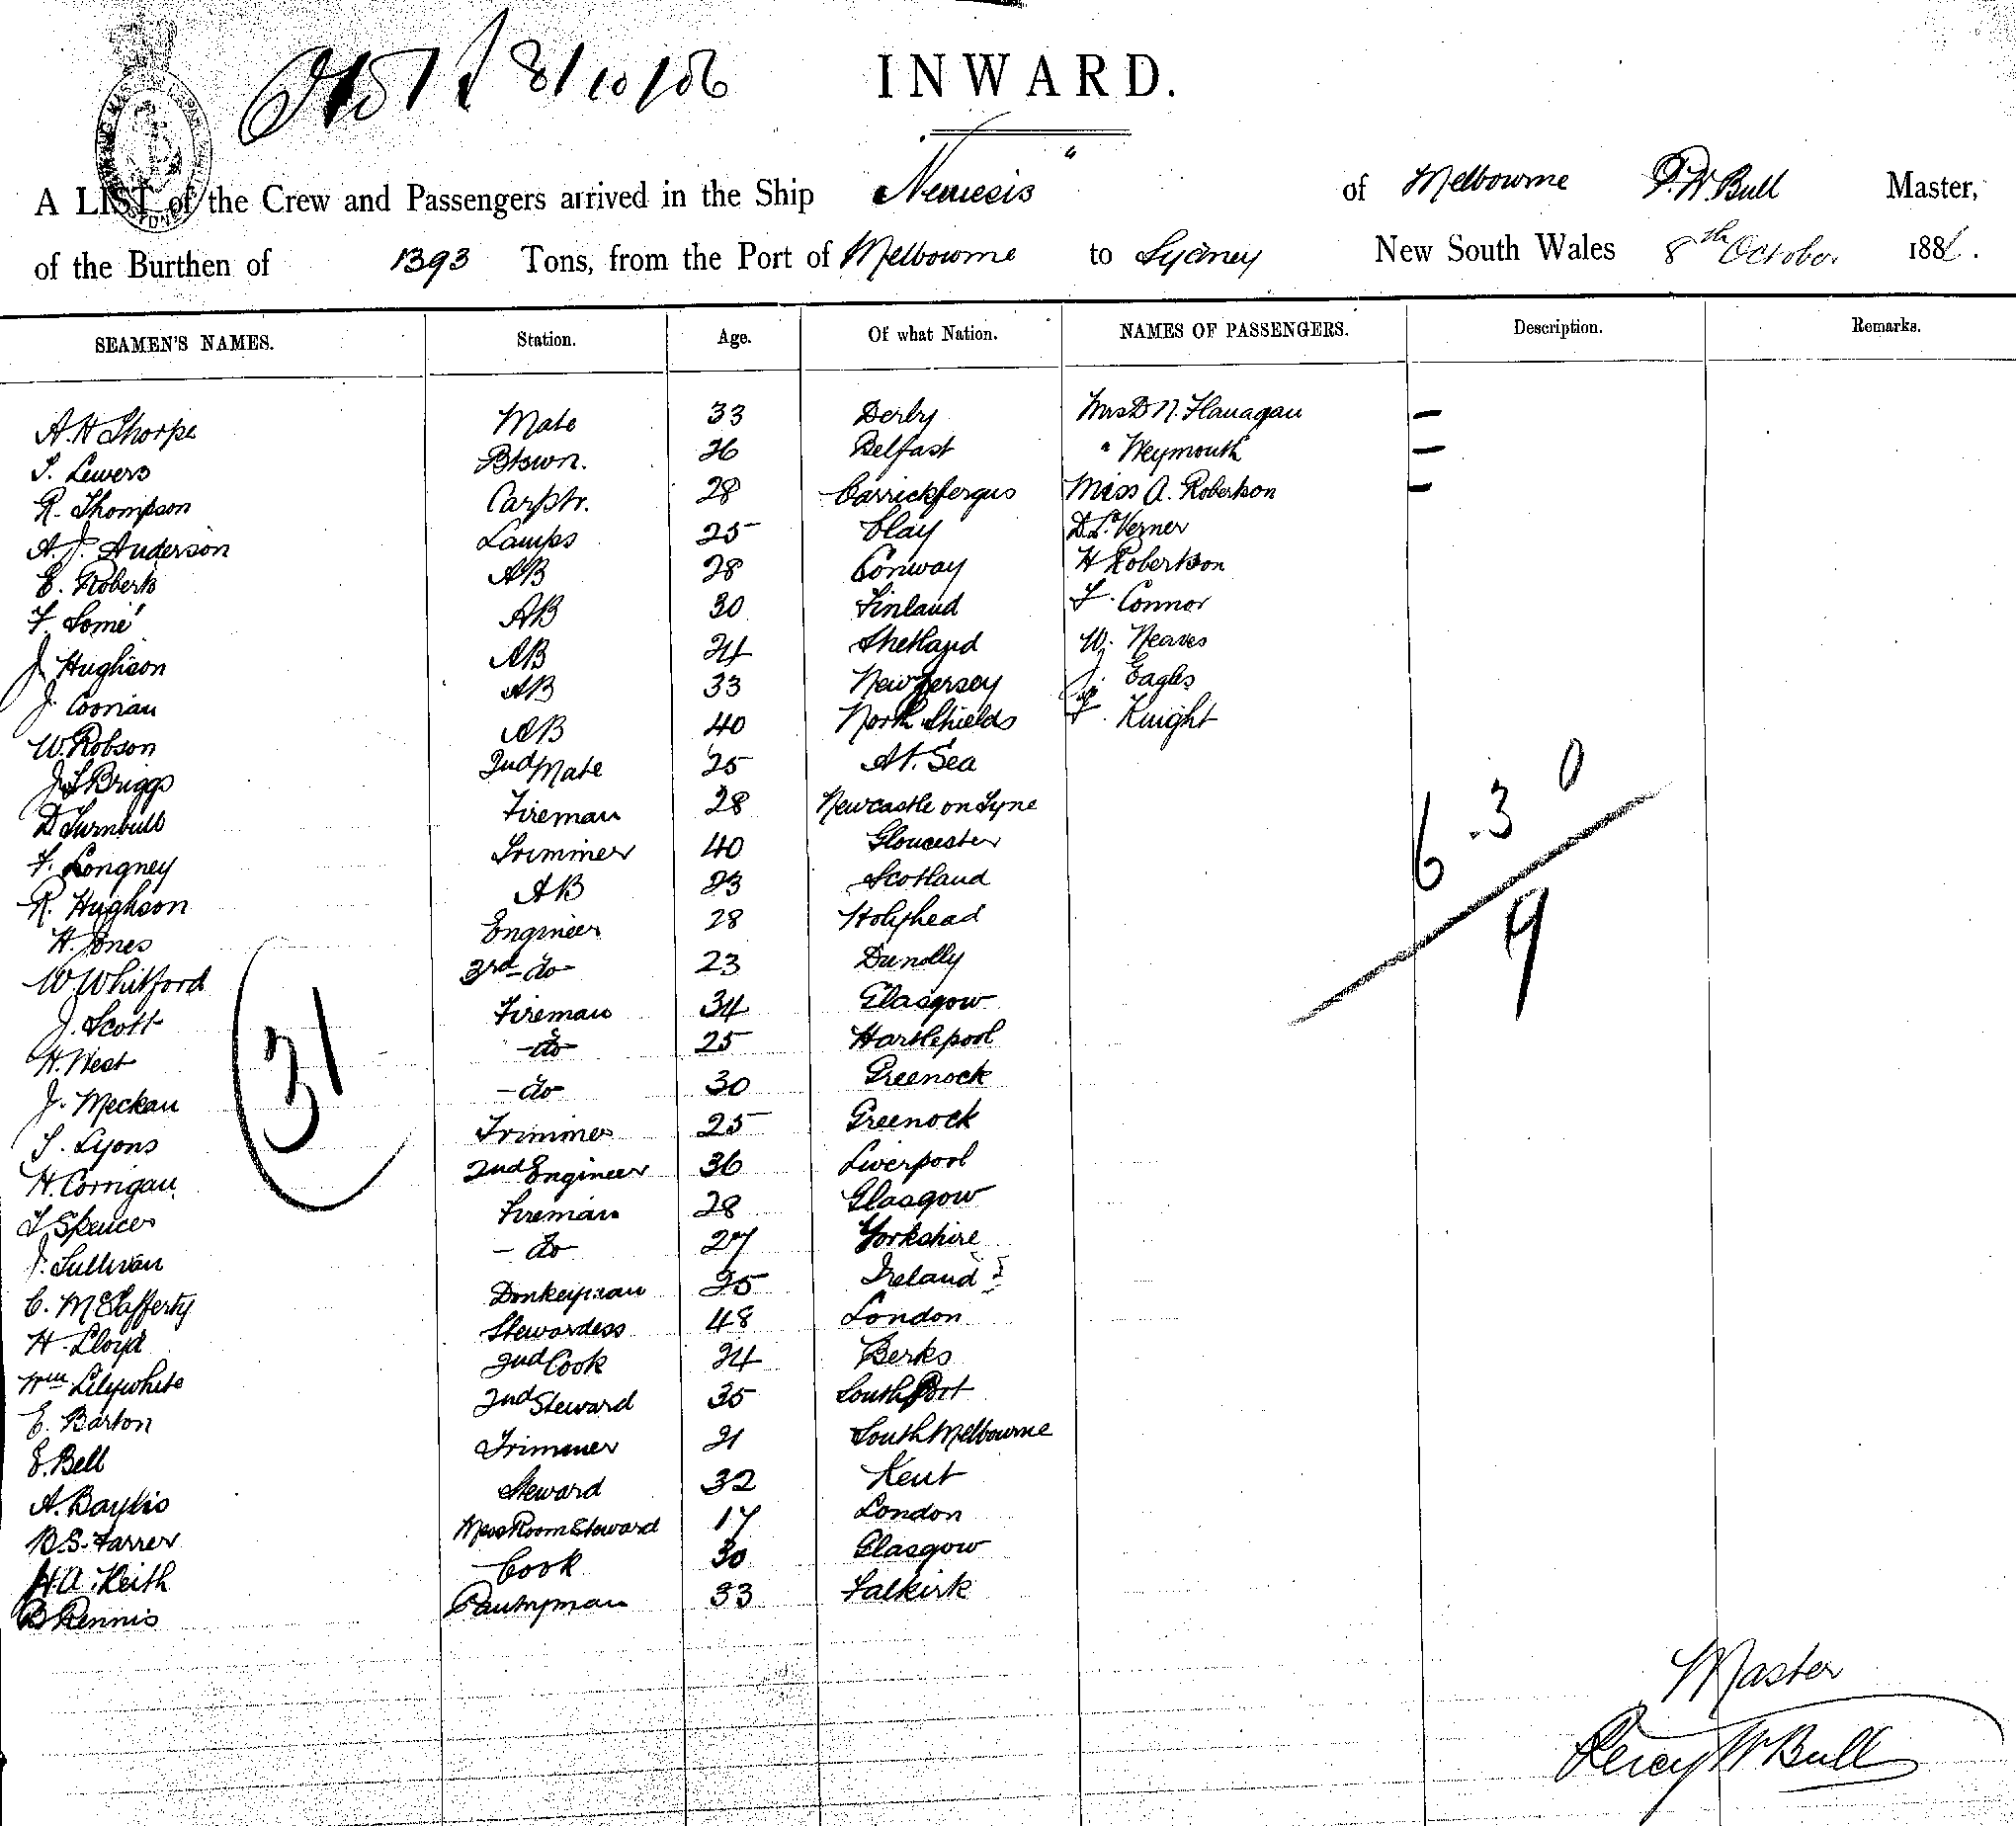 8/10/86
INWARD.
A LIST of the Crew and Passengers arrived in the Ship Nemesis " of Melbourne P.W. Bull Master,
of the Burthen of 1393 Tons, from the Port of Melbourne to Sydney New South Wales 8th October 188
SEAMEN'S NAMES. Station. Age. Of what Nation. NAMES OF PASSENGERS. Description. Remarks.
A. H Thorpe Mate 33 Derby Mrs D N. Flanagan —
S. Lewers Btswn. 26 Belfast " Weymouth —
R. Thompson Carptr. 28 Carrickfergus Miss A. Robertson —
A. J. Anderson Lamps 25 Clay Verner
E. Roberts AB 28 Conway H Robertson
F. Somé AB 30 Finland F. Connor
J. Hughson AB 24 Shetland W. Neaves
J. Coonan AB 33 New Jersey J. Eagles
W. Robson AB 40 North Shields F. Knight
J. L Briggs 2nd Mate 25 At Sea
D Turnbull Fireman 28 Newcastle on Tyne
F. Longney Trimmer 40 Gloucester
R. Hughson AB 23 Scotland
H. Jones Engineer 28 Holyhead
W. Whitford 3rd - do - 23 Dunolly
J. Scott Fireman 34 Glasgow
H. West - do - 25 Hartlepool
J. Meckan - do - 30 Greenock
S. Lyons Trimmer 25 Greenock
H. Corrigan 2nd Engineer 36 Liverpool
T Spencer Fireman 28 Glasgow
J. Sullivan - do - 27 Yorkshire
C. McLafferty Donkeyman 25 Ireland
H. Lloyd Stewardess 48 London
Wm Lilywhite 2nd Cook 24 Berks
E. Barton 2nd Steward 35 South Port
E. Bell Trimmer 21 South Melbourne
A. Baylis Steward 32 Kent
B. S. Farrer Mess Room Steward 17 London
H. A. Keith Cook 30 Glasgow
B Rennis Pantryman 33 Falkirk
31
6 . 3 0
9
Master
Percy W Bull